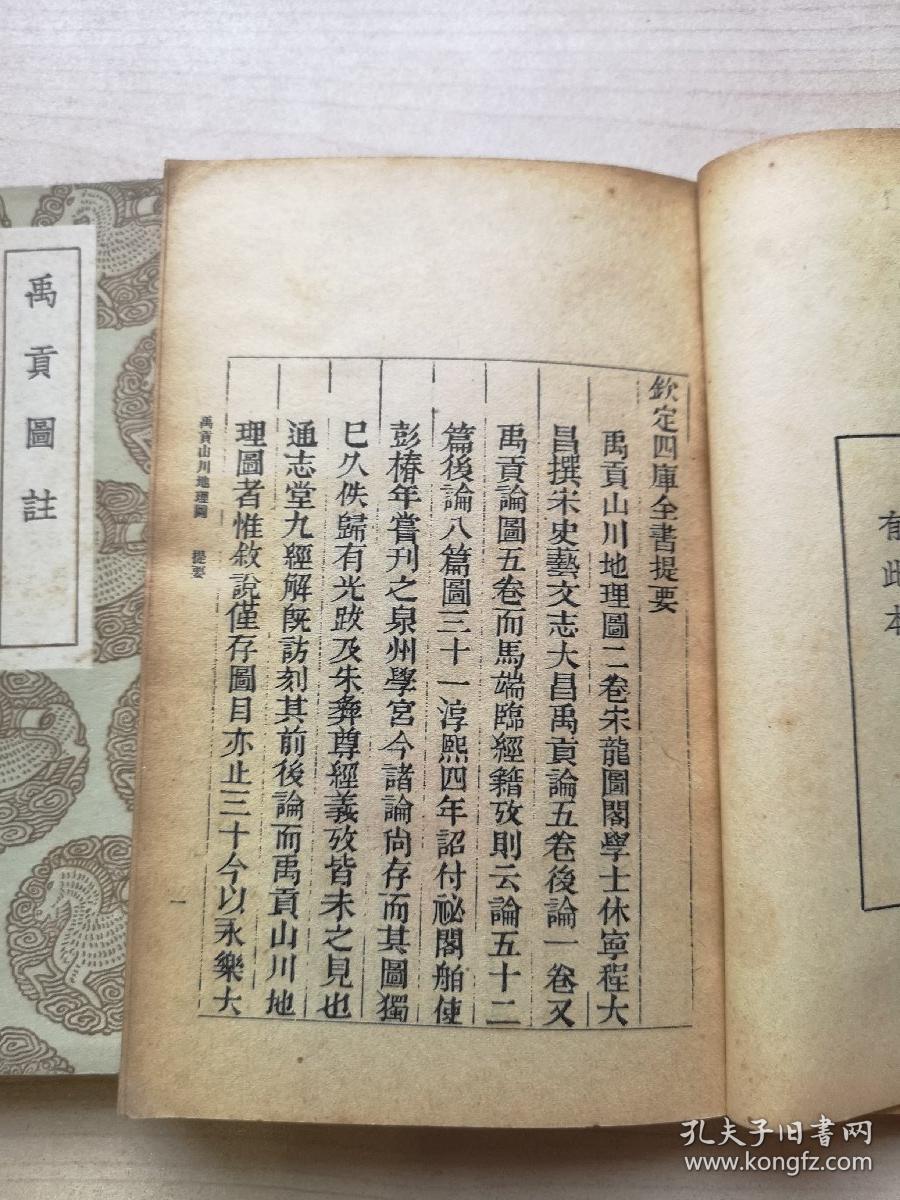 欽定四庫全書提要
禹貢山川地理圖二卷宋龍圖閣學士休寧程大
昌撰宋史藝文志大昌禹貢論五卷後論一卷又
禹貢論圖五卷而馬端臨經籍攷則云論五十二
篇後論八篇圖三十一淳熙四年詔付祕閣舶使
彭椿年嘗刊之泉州學宮今諸論尚存而其圖獨
巳久佚歸有光跋及朱彝尊經義攷皆未之見也
通志堂九經解旣訪刻其前後論而禹貢山川地
理圖者惟敘說僅存圖目亦止三十今以永樂大
禹貢山川地理圖 提要
一
禹貢圖註
有此本
孔夫子旧书网
www.kongfz.com